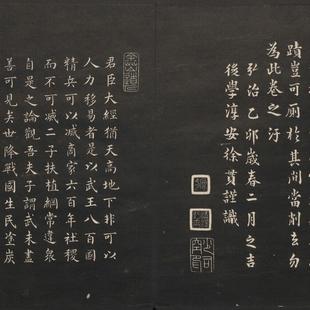 蹟豈可厠於其間當削去勿
為此卷之汙
弘治乙卯歲春二月之吉
後學淳安徐貫謹識
君臣大經猶天高地下非可以
人力移易者是以武王八百國
精兵可以滅商家六百年社稷
而不可滅二子扶植綱常違衆
自是之論觀吾夫子謂武未盡
善可見矣世降戰國生民塗炭